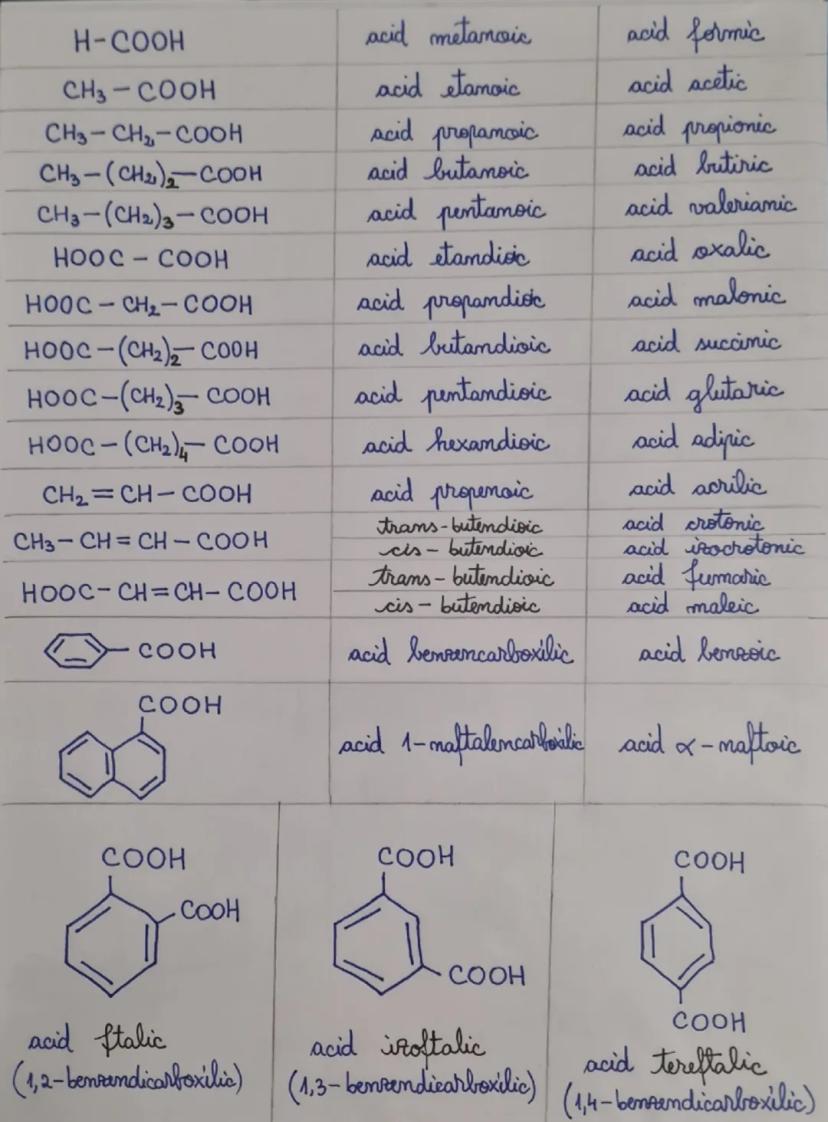 H-COOH acid metanoic acid formic
CH₃-COOH acid etanoic acid acetic
CH₃-CH₂-COOH acid propanoic acid propionic
CH₃-(CH₂)₂-COOH acid butanoic acid butiric
CH₃-(CH₂)₃-COOH acid pentanoic acid valerianic
HOOC-COOH acid etandioic acid oxalic
HOOC-CH₂-COOH acid propandioic acid malonic
HOOC-(CH₂)₂-COOH acid butandioic acid succinic
HOOC-(CH₂)₃-COOH acid pentandioic acid glutaric
HOOC-(CH₂)₄-COOH acid hexandioic acid adipic
CH₂=CH-COOH acid propenoic acid acrilic
trans-butendioic acid crotonic
CH₃-CH=CH-COOH
cis-butendioic acid izocrotonic
trans-butendioic acid fumaric
HOOC-CH=CH-COOH
cis-butendioic acid maleic
-COOH acid benzencarboxilic acid benzoic
COOH
acid 1-naftalencarboxilic acid α-naftoic
COOH COOH COOH
COOH
COOH
COOH
acid ftalic acid izoftalic acid tereftalic
(1,2-benzendicarboxilic) (1,3-benzendicarboxilic) (1,4-benzendicarboxilic)